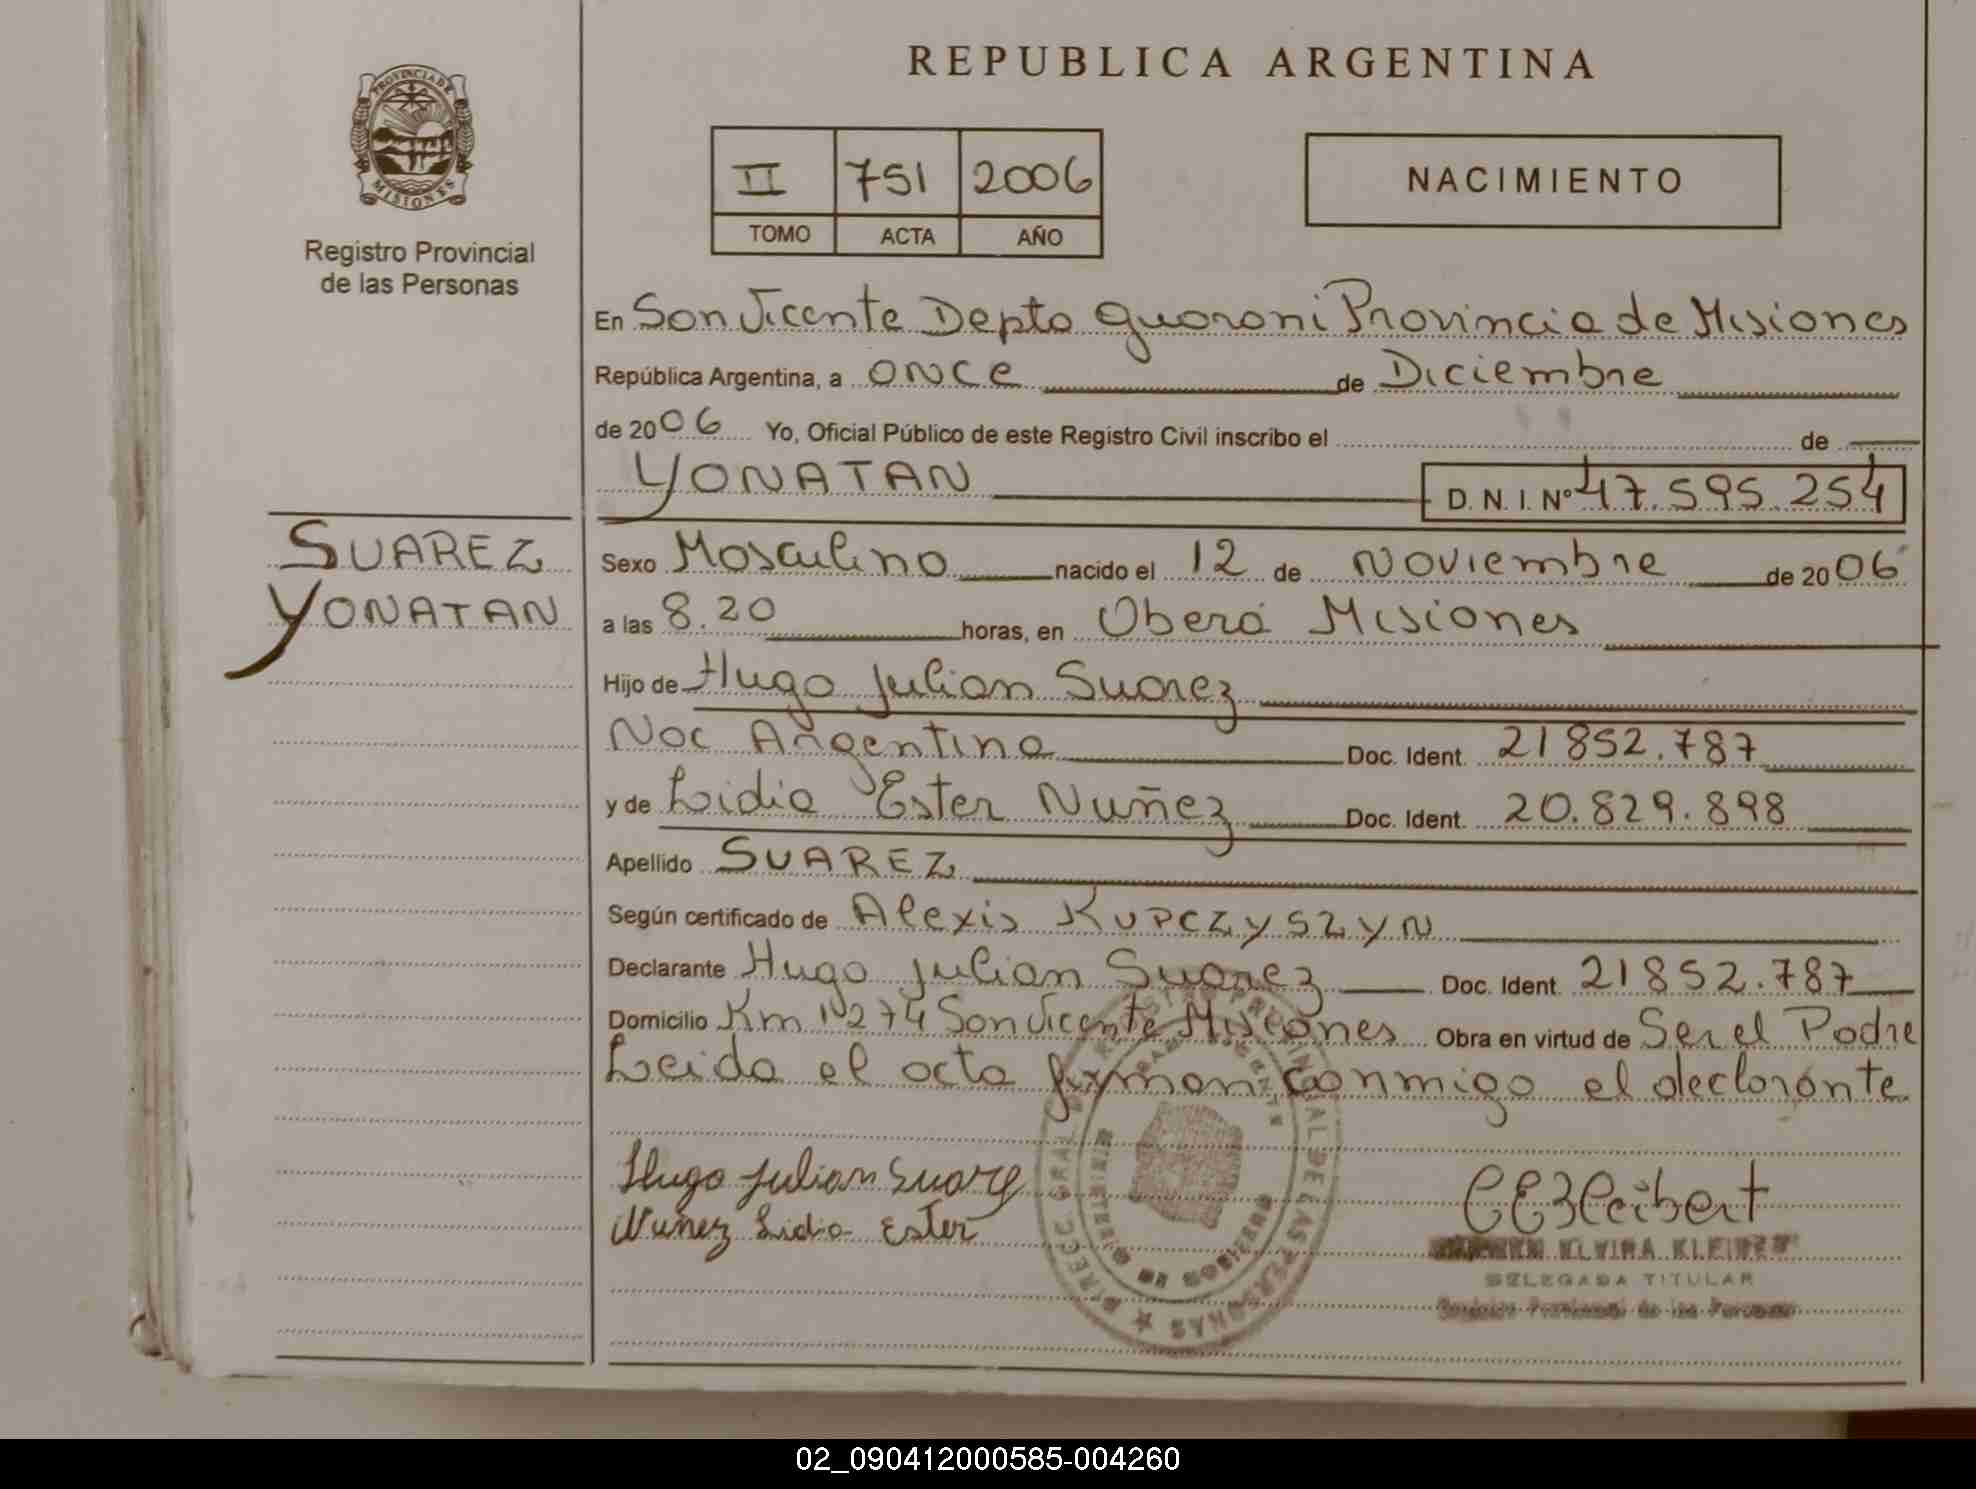 REPUBLICA ARGENTINA
PROVINCIA DE
MISIONES
Registro Provincial
de las Personas
II 751 2006
TOMO ACTA AÑO
NACIMIENTO
En San Vicente Depto Guarani Provincia de Misiones
República Argentina, a once de Diciembre
de 2006 Yo, Oficial Público de este Registro Civil inscribo el de
YONATAN D. N. I. Nº 47.595.254
SUAREZ
YONATAN
Sexo Masculino nacido el 12 de Noviembre de 2006
a las 8.20 horas, en Oberá Misiones
Hijo de Hugo Julian Suarez
Nac Argentina Doc. Ident. 21852.787
y de Lidia Ester Nuñez Doc. Ident. 20.829.898
Apellido SUAREZ
Según certificado de Alexis KUPCZYSZYN
Declarante Hugo Julian Suarez Doc. Ident. 21852.787
Domicilio Km 1274 San Vicente Misiones Obra en virtud de Ser el Padre
Leida el acta firman conmigo el declarante
Hugo Julian Suarez
Nuñez Lidia Ester
DIRECC. GRAL. DEL REGISTRO PROVINCIAL DE LAS PERSONAS
MINISTERIO DE GOBIERNO
ELVIRA
DELEGADA TITULAR
Registro Provincial de las Personas
02_090412000585-004260